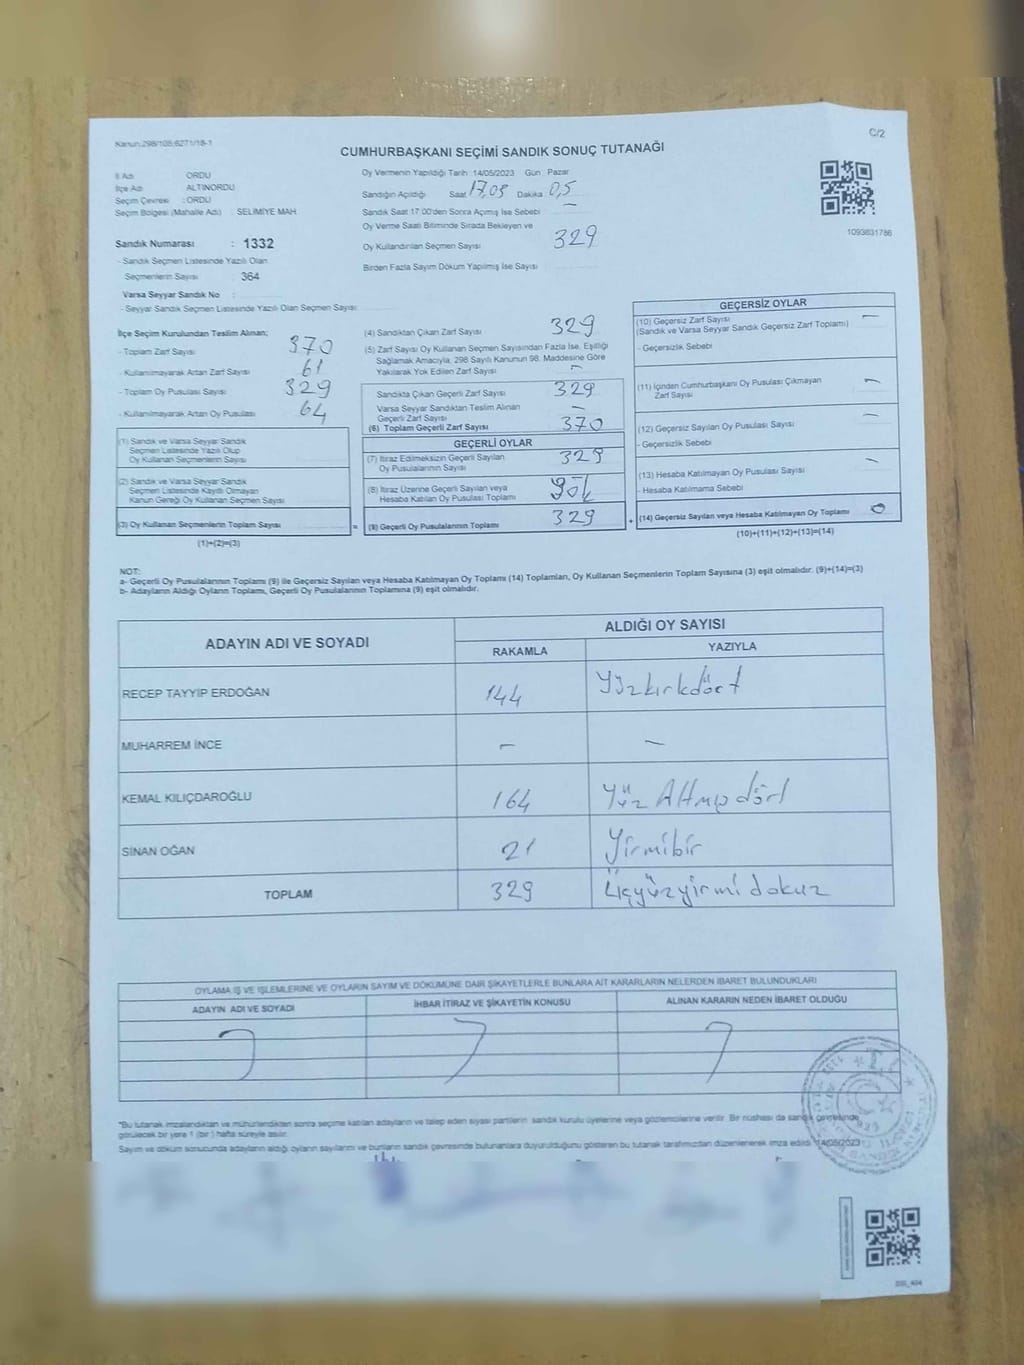 Kanun:298/105;6271/18-1
C/2
CUMHURBAŞKANI SEÇİMİ SANDIK SONUÇ TUTANAĞI
İl Adı ORDU
İlçe Adı ALTINORDU
Seçim Çevresi : ORDU
Seçim Bölgesi (Mahalle Adı) : SELİMİYE MAH
Sandık Numarası : 1332
- Sandık Seçmen Listesinde Yazılı Olan
Seçmenlerin Sayısı 364
Varsa Seyyar Sandık No :
- Seyyar Sandık Seçmen Listesinde Yazılı Olan Seçmen Sayısı
Oy Vermenin Yapıldığı Tarih 14/05/2023 Gün Pazar
Sandığın Açıldığı Saat 17,05 Dakika 0,5
Sandık Saat 17 00'den Sonra Açımış İse Sebebi —
Oy Verme Saati Bitiminde Sırada Bekleyen ve
Oy Kullandırılan Seçmen Sayısı 329
Birden Fazla Sayım Döküm Yapılmış İse Sayısı
1093831786
İlçe Seçim Kurulundan Teslim Alınan;
- Toplam Zarf Sayısı 370
- Kullanılmayarak Artan Zarf Sayısı 61
- Toplam Oy Pusulası Sayısı 329
- Kullanılmayarak Artan Oy Pusulası 64
(1) Sandık ve Varsa Seyyar Sandık
Seçmen Listesinde Yazılı Olup
Oy Kullanan Seçmenlerin Sayısı
(2) Sandık ve Varsa Seyyar Sandık
Seçmen Listesinde Kayıtlı Olmayan
Kanun Gereği Oy Kullanan Seçmen Sayısı
(3) Oy Kullanan Seçmenlerin Toplam Sayısı
(1)+(2)=(3)
(4) Sandıktan Çıkan Zarf Sayısı 329
(5) Zarf Sayısı Oy Kullanan Seçmen Sayısından Fazla İse, Eşitliği
Sağlamak Amacıyla, 298 Sayılı Kanunun 98. Maddesine Göre
Yakılarak Yok Edilen Zarf Sayısı —
Sandıkta Çıkan Geçerli Zarf Sayısı 329
Varsa Seyyar Sandıktan Teslim Alınan
Geçerli Zarf Sayısı —
(6) Toplam Geçerli Zarf Sayısı 370
GEÇERLİ OYLAR
(7) İtiraz Edilmeksizin Geçerli Sayılan
Oy Pusulalarının Sayısı 329
(8) İtiraz Üzerine Geçerli Sayılan veya
Hesaba Katılan Oy Pusulası Toplamı yok
= (9) Geçerli Oy Pusulalarının Toplamı 329
GEÇERSİZ OYLAR
(10) Geçersiz Zarf Sayısı —
(Sandık ve Varsa Seyyar Sandık Geçersiz Zarf Toplamı)
- Geçersizlik Sebebi
(11) İçinden Cumhurbaşkanı Oy Pusulası Çıkmayan
Zarf Sayısı —
(12) Geçersiz Sayılan Oy Pusulası Sayısı —
- Geçersizlik Sebebi
(13) Hesaba Katılmayan Oy Pusulası Sayısı —
- Hesaba Katılmama Sebebi
+ (14) Geçersiz Sayılan veya Hesaba Katılmayan Oy Toplamı 0
(10)+(11)+(12)+(13)=(14)
NOT:
a- Geçerli Oy Pusulalarının Toplamı (9) ile Geçersiz Sayılan veya Hesaba Katılmayan Oy Toplamı (14) Toplamları, Oy Kullanan Seçmenlerin Toplam Sayısına (3) eşit olmalıdır. (9)+(14)=(3)
b- Adayların Aldığı Oyların Toplamı, Geçerli Oy Pusulalarının Toplamına (9) eşit olmalıdır.
ADAYIN ADI VE SOYADI
ALDIĞI OY SAYISI
RAKAMLA YAZIYLA
RECEP TAYYİP ERDOĞAN 144 Yüzkırkdört
MUHARREM İNCE — —
KEMAL KILIÇDAROĞLU 164 Yüz Altmış dört
SİNAN OĞAN 21 Yirmibir
TOPLAM 329 Üçyüzyirmi dokuz
OYLAMA İŞ VE İŞLEMLERİNE VE OYLARIN SAYIM VE DÖKÜMÜNE DAİR ŞİKAYETLERLE BUNLARA AİT KARARLARIN NELERDEN İBARET BULUNDUKLARI
ADAYIN ADI VE SOYADI İHBAR İTİRAZ VE ŞİKAYETİN KONUSU ALINAN KARARIN NEDEN İBARET OLDUĞU
*Bu tutanak imzalandıktan ve mühürlendikten sonra seçime katılan adayların ve talep eden siyasi partilerin sandık kurulu üyelerine veya gözlemcilerine verilir. Bir nüshası da sandık çevresinde
görülecek bir yere 1 (bir) hafta süreyle asılır.
Sayım ve döküm sonucunda adayların aldığı oyların sayılarını ve bunların sandık çevresinde bulunanlara duyurulduğunu gösteren bu tutanak tarafımızdan düzenlenerek imza edildi. 14/05/2023